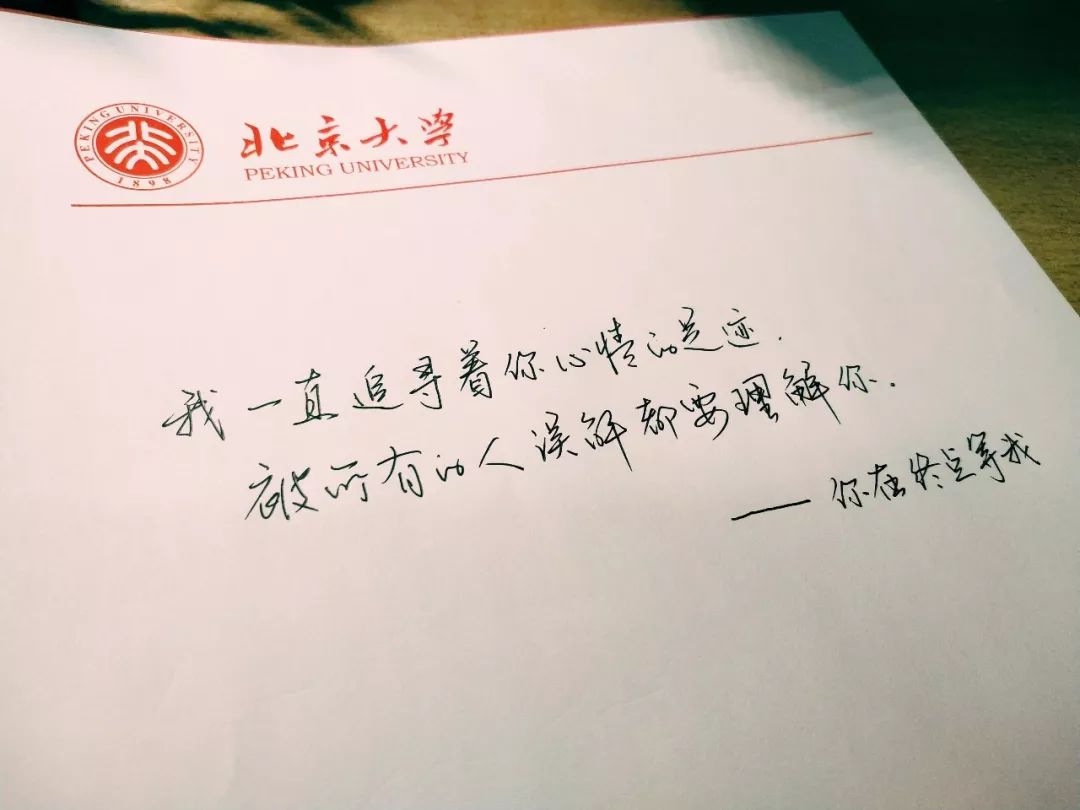 PEKING UNIVERSITY
1898
北京大学
PEKING UNIVERSITY
我一直追寻着你心情的足迹.
被所有的人误解都要理解你.
——你在终点等我